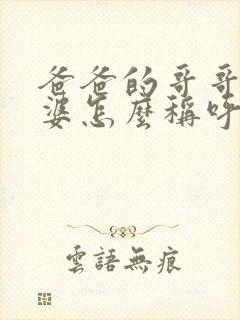 爸爸的哥哥
婆怎麼稱呼
雲語無痕